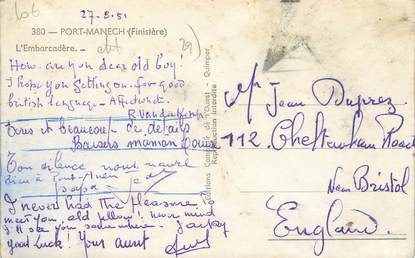 27-8-51
380 — PORT-MANECH (Finistère)
L'Embarcadère. —
How are you dear old boy!
I hope you getting on for good
british language - Affectionate
Ecris et beaucoup de détails
Baisers maman Louise
Ton silence nous navre
papa -
I never had the pleasure
meet you, old fellow! never mind
I'll see you somewhere. Jacky
good Luck! Your aunt
Editions de l'Ouest - Quimper
Reproduction interdite
Mr Jean Duprez
112, Cheltenham Road
Near Bristol
England